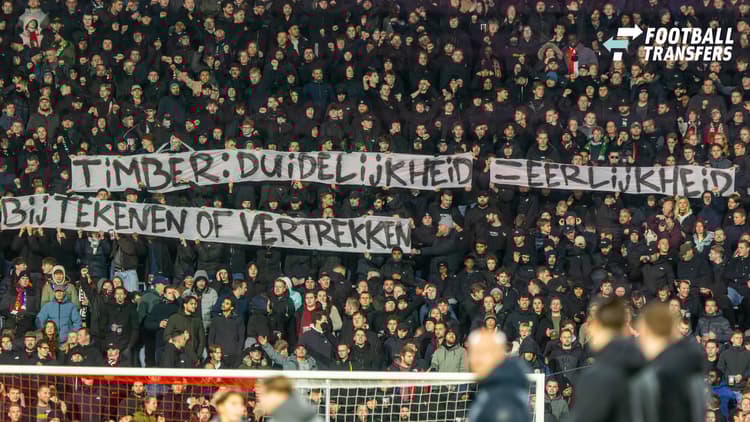 FOOTBALL
TRANSFERS
TIMBER: DUIDELIJKHEID = EERLIJKHEID
BIJTEKENEN OF VERTREKKEN